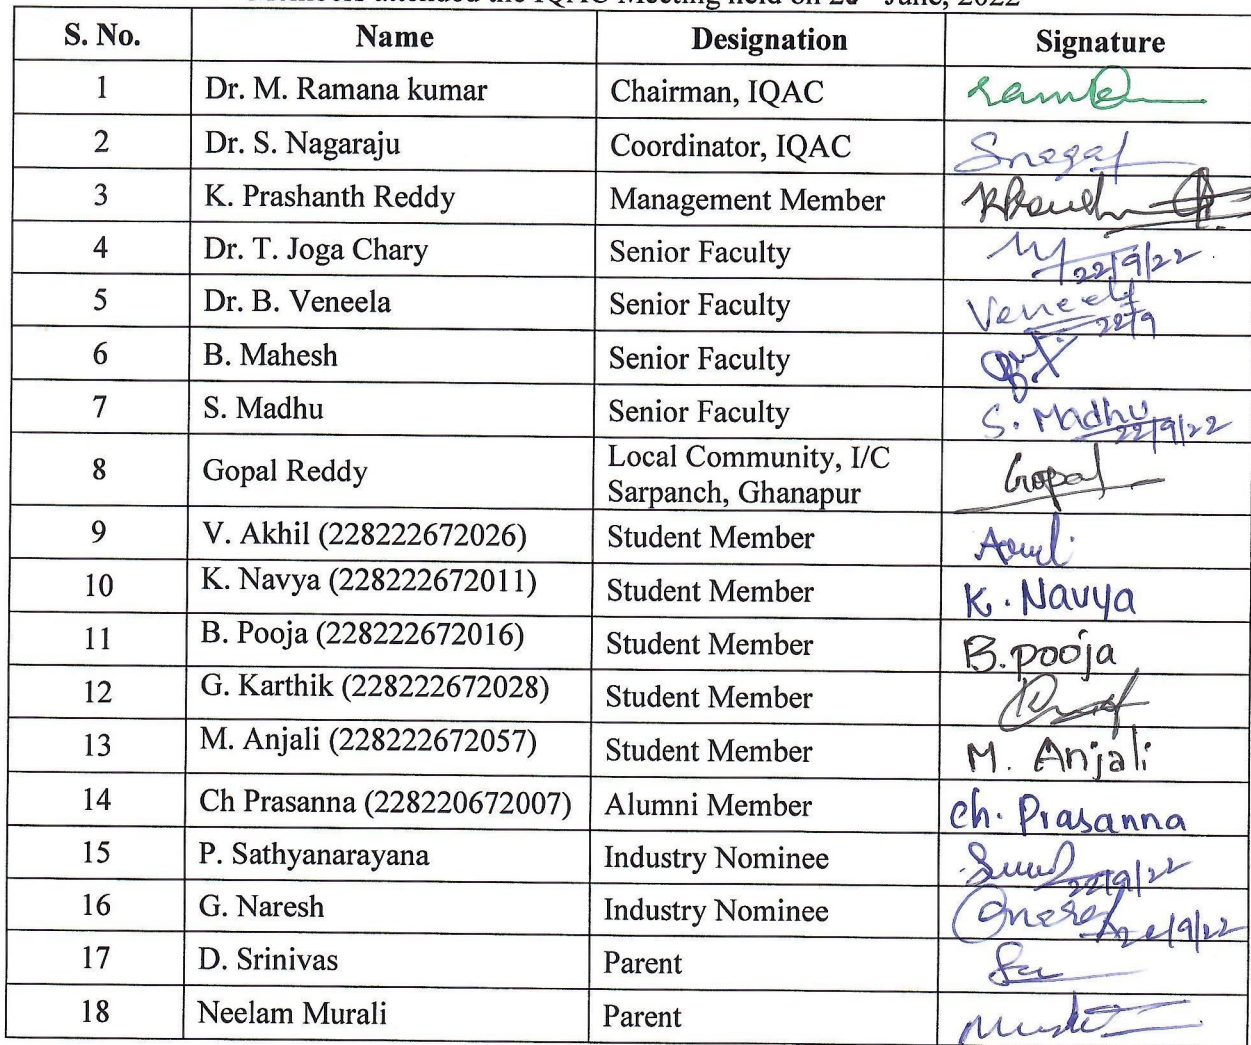 attended the IQAC Meeting held on June, 2022
S. No. Name Designation Signature
1 Dr. M. Ramana kumar Chairman, IQAC
2 Dr. S. Nagaraju Coordinator, IQAC
3 K. Prashanth Reddy Management Member
4 Dr. T. Joga Chary Senior Faculty 22/9/22
5 Dr. B. Veneela Senior Faculty Veneela 22/9
6 B. Mahesh Senior Faculty
7 S. Madhu Senior Faculty S. Madhu 22/9/22
8 Gopal Reddy Local Community, I/C
Sarpanch, Ghanapur Gopal
9 V. Akhil (228222672026) Student Member
10 K. Navya (228222672011) Student Member K. Navya
11 B. Pooja (228222672016) Student Member B. pooja
12 G. Karthik (228222672028) Student Member
13 M. Anjali (228222672057) Student Member M. Anjali
14 Ch Prasanna (228220672007) Alumni Member ch. Prasanna
15 P. Sathyanarayana Industry Nominee 22/9/22
16 G. Naresh Industry Nominee
17 D. Srinivas Parent
18 Neelam Murali Parent